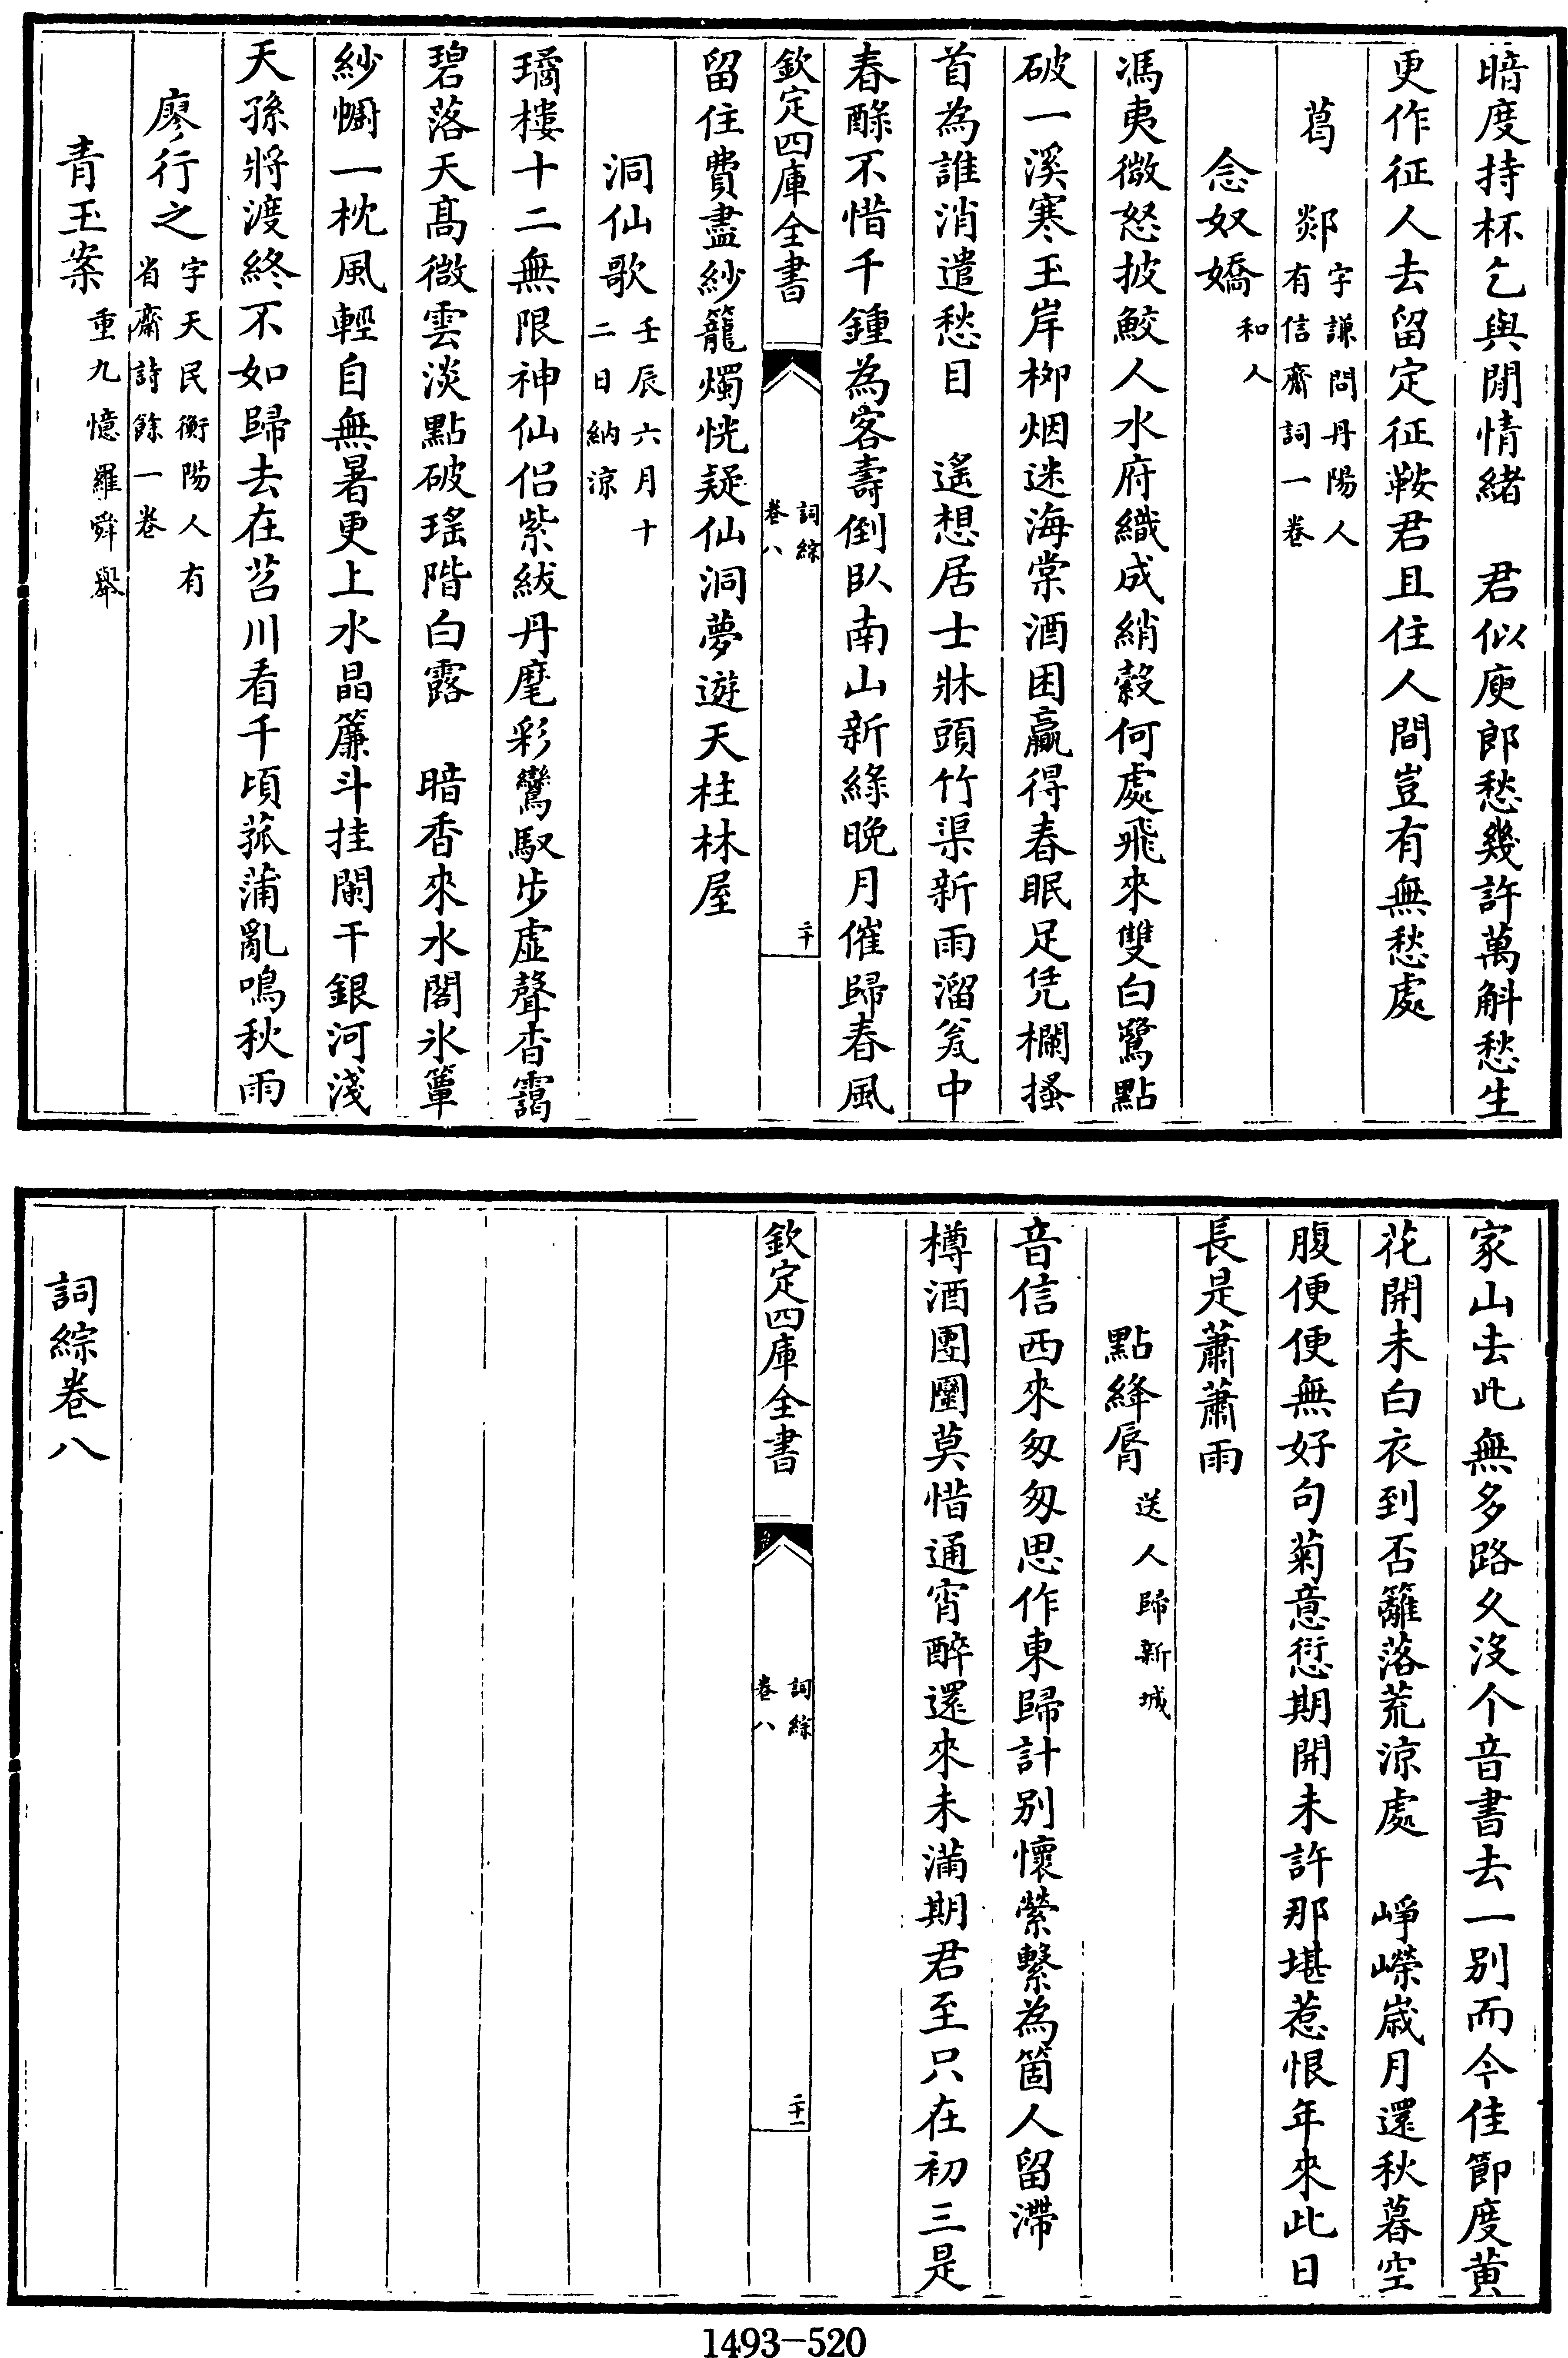 暗度持杯乞與閒情緒　君似庾郎愁幾許萬斛愁生
更作征人去留定征鞍君且住人間豈有無愁處
葛　郯字謙問丹陽人有信齋詞一卷
念奴嬌和人
馮夷微怒披鮫人水府織成綃縠何處飛來雙白鷺點
破一溪寒玉岸柳烟迷海棠酒困贏得春眠足凭欄搔
首為誰消遣愁目　遙想居士牀頭竹渠新雨溜瓮中
春醁不惜千鍾為客壽倒臥南山新綠晚月催歸春風
欽定四庫全書　詞綜卷八　二十
留住費盡紗籠燭恍疑仙洞夢遊天柱林屋
洞仙歌壬辰六月十二日納涼
璚樓十二無限神仙侶紫紱丹麾彩鸞馭步虛聲杳靄
碧落天髙微雲淡點破瑤階白露　暗香來水閣氷簟
紗幮一枕風輕自無暑更上水晶簾斗挂闌干銀河淺
天孫將渡終不如歸去在苕川看千頃菰蒲亂鳴秋雨
廖行之字天民衡陽人有省齋詩餘一卷
青玉案重九憶羅舜舉
家山去此無多路久沒个音書去一别而今佳節度黄
花開未白衣到否籬落荒涼處　崢嶸歲月還秋暮空
腹便便無好句菊意愆期開未許那堪惹恨年來此日
長是蕭蕭雨
點絳脣送人歸新城
音信西來匆匆思作東歸計别懷縈繫為箇人留滯
樽酒團圞莫惜通宵醉還來未滿期君至只在初三是
欽定四庫全書　詞綜卷八　二十一
詞綜卷八
1493-520